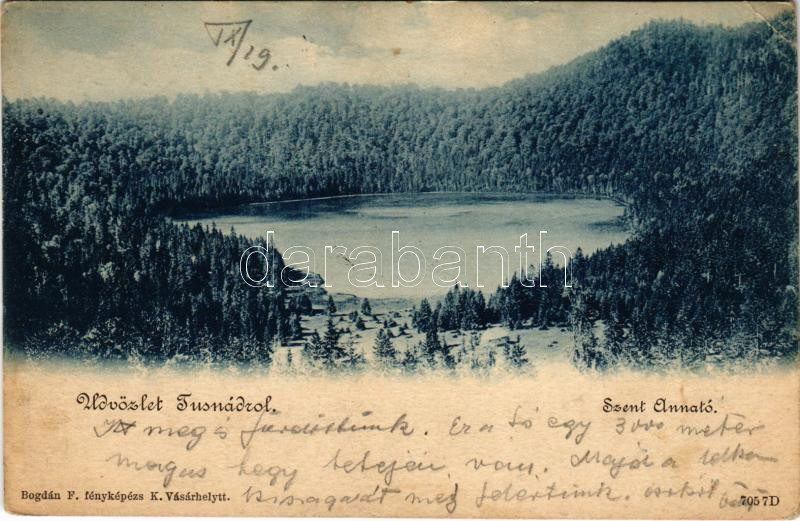 IX/19.
darabanth
Üdvözlet Tusnádrol.
Szent Annató.
Itt meg is fürödtünk. Ez a tó egy 3000 meter
magas hegy tetején van. Majd a
meg
Bogdán F. fényképézs K. Vásárhelytt.
7057D